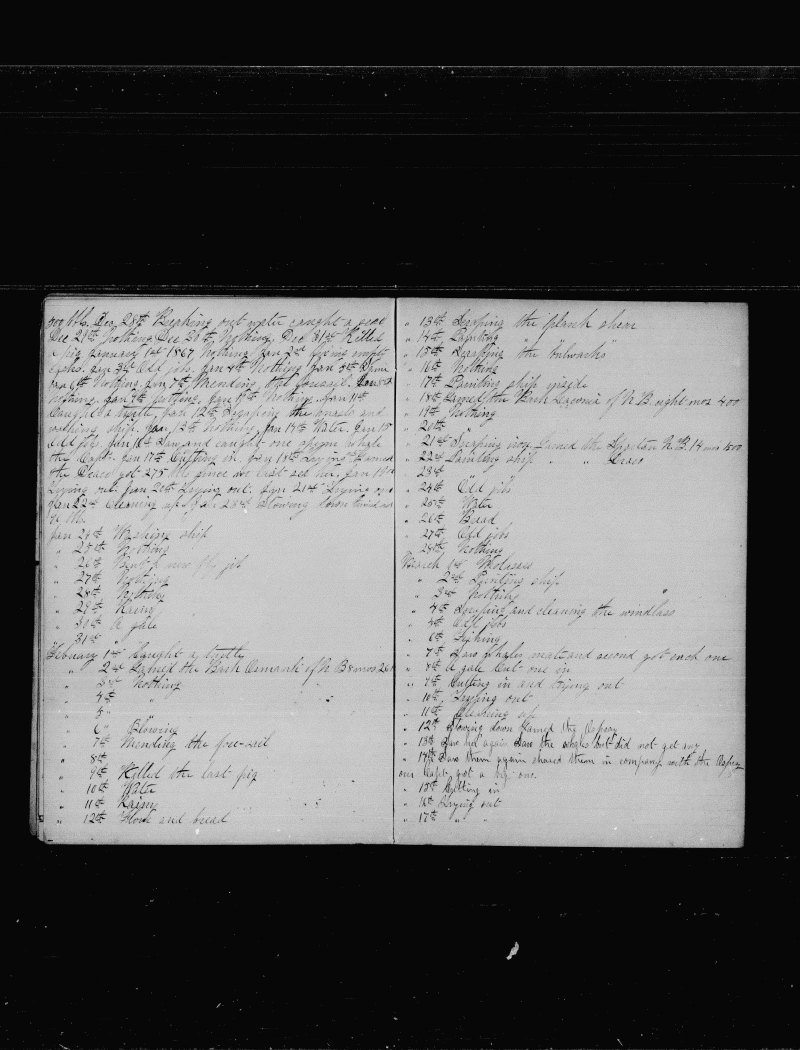 500 bbls. Dec 28th Breaking out water caught a seal
Dec 29th Nothing Dec 30th Nothing. Dec 31st Killed
a pig January 1st 1867 Nothing Jan 2nd fixing empty
casks. Jan 3rd Odd jobs. Jan 4th Nothing Jan 5th Same
Jan 6th Nothing. Jan 7th Mending the foresail. Jan 8th
nothing. Jan 9th Nothing. Jan 10th Nothing. Jan 11th
Caught a turtle, Jan 12th Scraping the masts and
washing ship. Jan 13th Nothing, Jan 14th Water. Jan 15
Odd jobs. Jan 16th Saw and caught one sperm whale
the Capt. Jan 17th Cutting in. Jan 18th Trying. Gamed
the got 275 bbls since we last see her. Jan 19th
Trying out. Jan 20th Trying out. Jan 21st Trying out
Jan 22nd Cleaning up Jan 23rd Stowing down
70 bbls.
Jan 24th Washing ship
" 25th Nothing
" 26th Bent a new fly jib
" 27th Nothing
" 28th Nothing
" 29th Rainy
" 30th A gale
" 31st "
February 1st Caught a turtle
" 2nd Gamed the Bark Osmanli of N B 8 mos 260
" 3rd Nothing
" 4th "
" 5th "
" 6th Blowing
" 7th Mending the fore-sail
" 8th "
" 9th Killed the last pig
" 10th Water
" 11th Rainy
" 12th Flour and bread
" 13th Scraping the plank shear
" 14th Painting " "
" 15th Scrapping the bulwarks
" 16th Nothing
" 17th Painting ship inside
" 18th Gamed the Bark of N. B. eight mos 400
" 19th Nothing
" 20th "
" 21st Scraping iron Gamed the N. B. 14 mos 1500
" 22nd Painting ship " "
" 23rd "
" 24th Odd jobs
" 25th Water
" 26th Bread
" 27th Odd jobs
" 28th Nothing
March 1st Molasses
" 2nd Painting ship
" 3rd Nothing
" 4th Scraping and cleaning the windlass
" 5th Odd jobs
" 6th Fishing
" 7th Saw whales mate and second got each one
" 8th A gale Cut one in
" 9th Cutting in and trying out
" 10th Trying out
" 11th Cleaning up
" 12th Stowing down Gamed the Osprey
" 13th Saw her again Saw the whales but did not get any
" 14th Saw them again chased them in company with the Osprey
our Capt. got a big one.
" 15th Cutting in
" 16th Trying out
" 17th " "